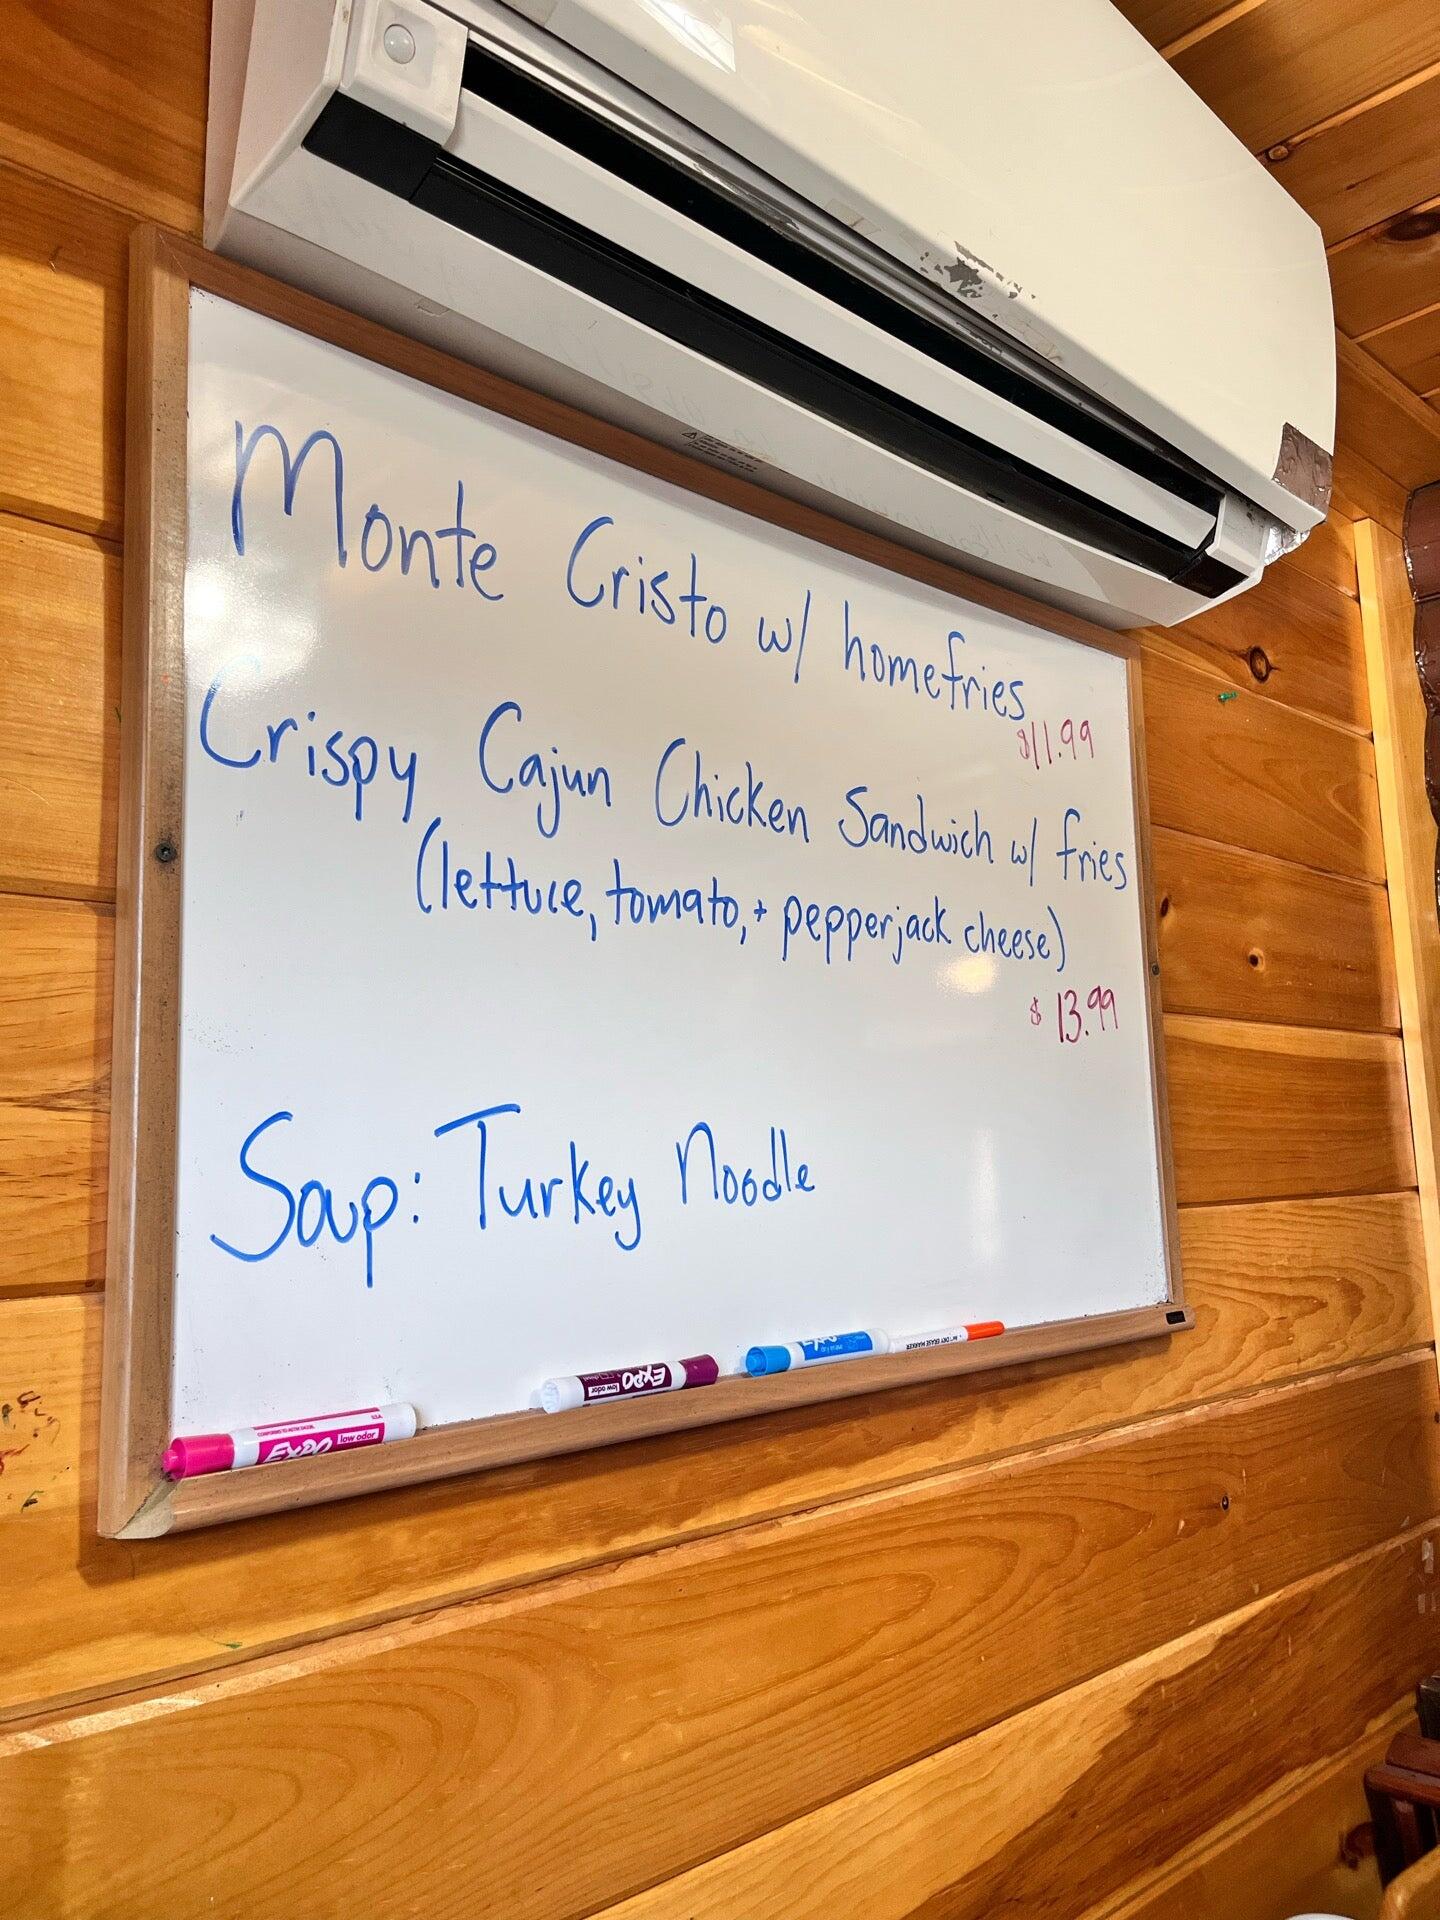 Monte Cristo w/ homefries
$11.99
Crispy Cajun Chicken Sandwich w/ fries
(lettuce, tomato, + pepperjack cheese)
$13.99
Soup: Turkey Noodle
EXPO low odor
EXPO
low odor
DRY ERASE MARKER